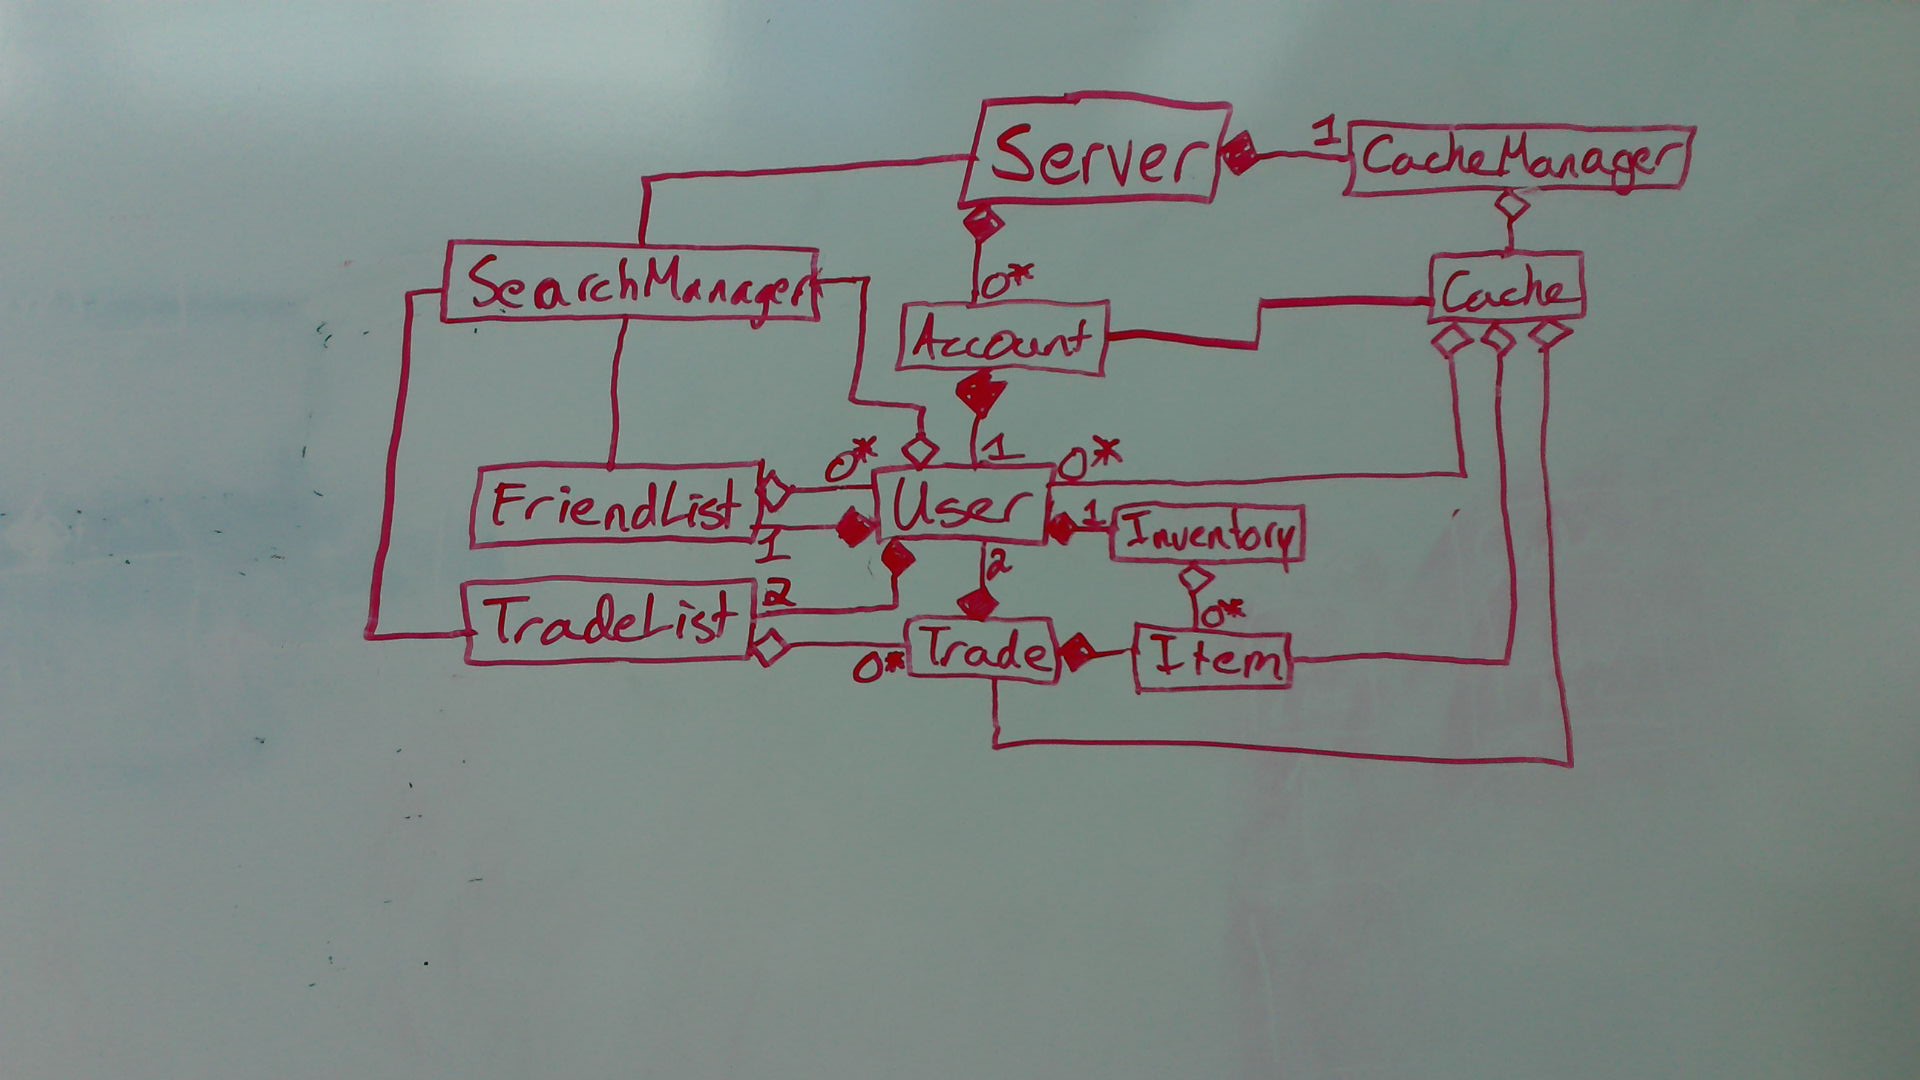 Server
1
CacheManager
SearchManager
0*
Cache
Account
0*
1
0*
FriendList
User
1
Inventory
1
2
2
TradeList
0*
0*
Trade
Item